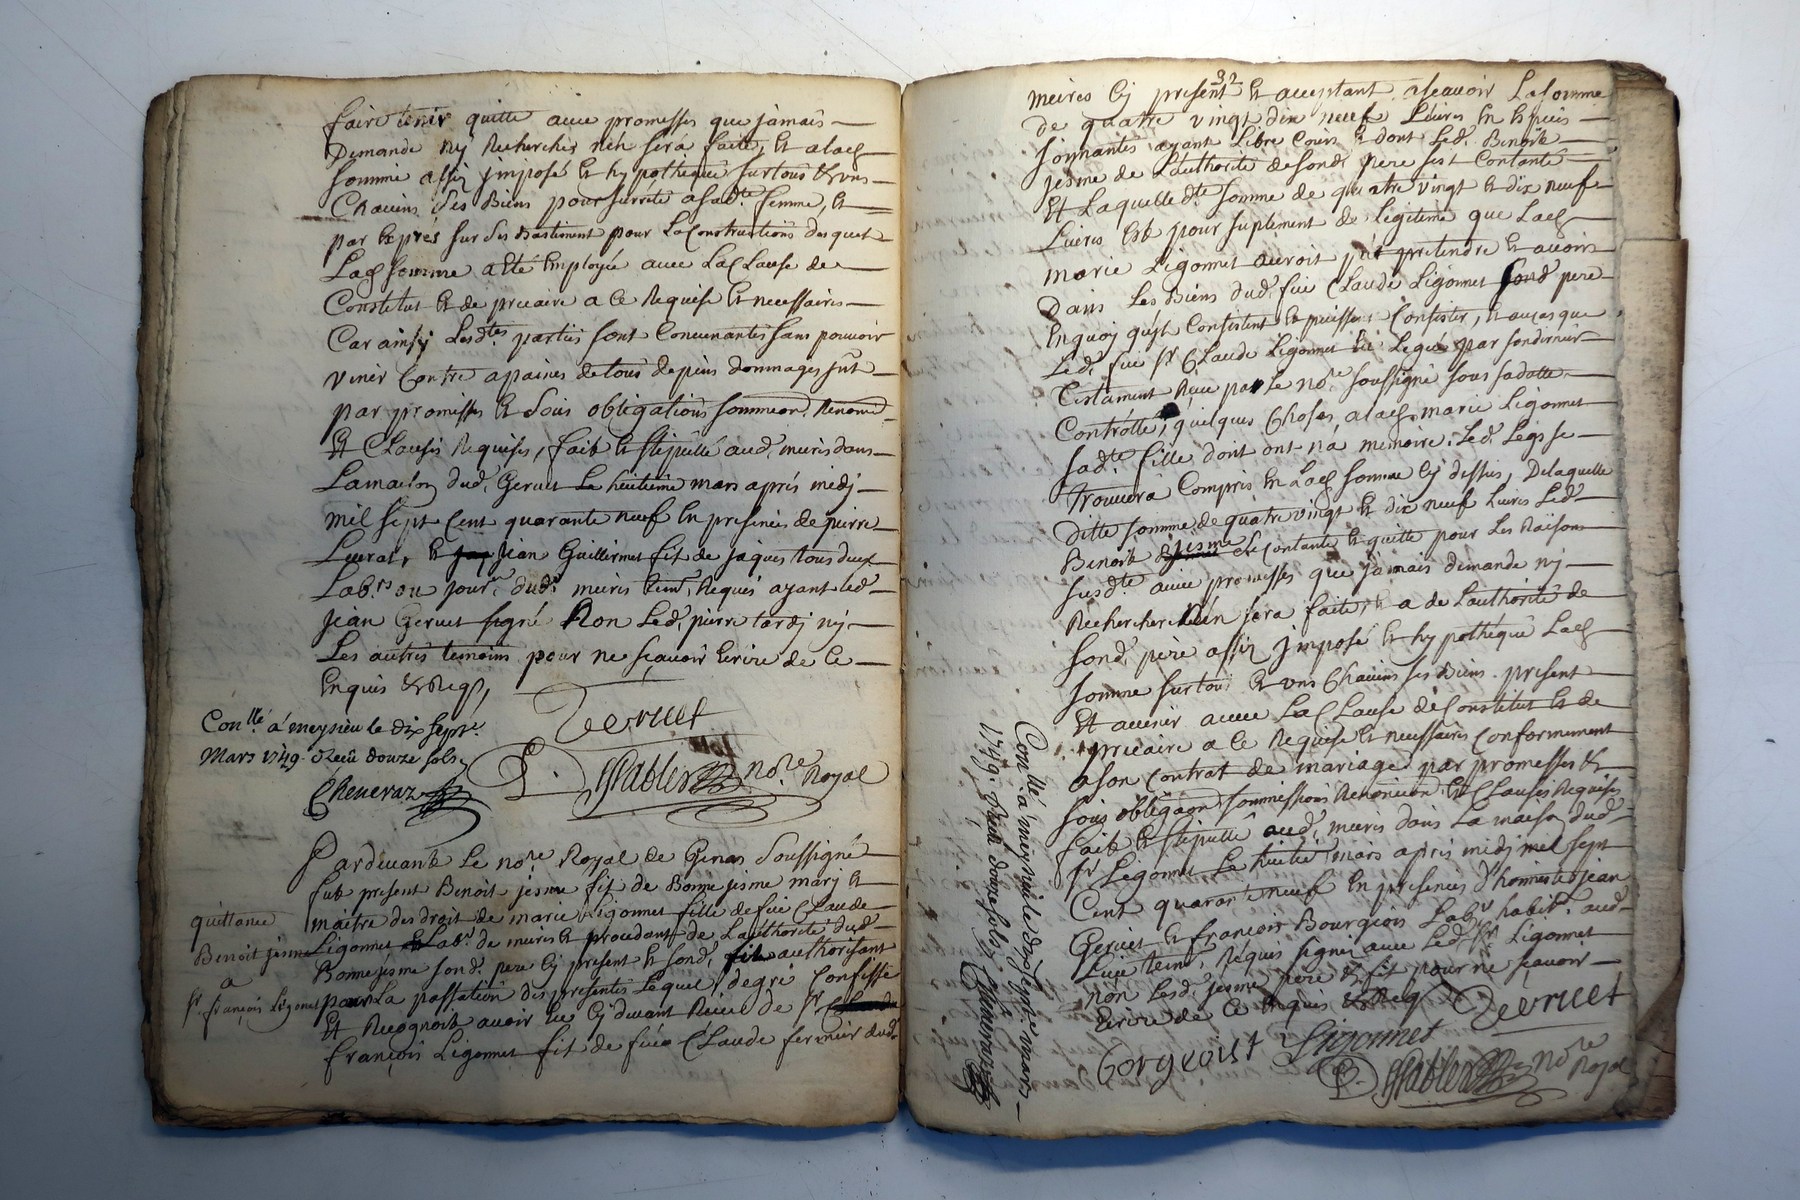 faire tenir quitte avec promesses que jamais
Demande ny Recherches n'en sera faite, Et a lad.
Somme assis imposé Et hypothequé sur tous &vns
Chacuns ses Biens pour surreté a sad.te femme, Et
par Exprés sur les Bastiment pour La Construction desquels
Lad somme a Eté Employée avec La Clause de
Constitut Et de precaire a ce Requise Et necessaires
Car ainsy Lesd.tes parties sont Convenantes sans pouvoir
venir Contre a paines de tous depens dommages
par promesses Et sous obligations
Et Clauses Requises, fait Et stipullé aud. meiris dans
La maison dud. Gervet Le huitieme mars aprés midj
mil sept Cent quarante neuf En presences de pierre
Luvrat, Et Jean Guillermet fit de jaques tous deux
Lab.rs ou jour.rs dud. meiris tem. Requis ayant led.
Jean Gervet signé Non Led. pierre tardj nj
Les autres temoins pour ne sçavoir Ecrire de Ce
Enquis & Req,
Gervet
Con.llé á meysieu le dix sept.e
Mars 1749. Reçu douze sols
Cheneraz
P. Sablier no.re Royal
Pardevant Le no.re Royal de Genas Soussigné
fut present Benoit jesme fit de Bonne jesme marj Et
maitre des droit de marie Ligonnet fille de fue Claude
Ligonnet Lab.r de meiris Et procedant de L'authorité dud.
Bonne jesme son d. pere Cy present Et sond. fit authorisant
pour La passation des presentes Lequel, degré Confesse
Et Recognoit avoir Eu Cy devant Reçeu de S.r
françois Ligonnet fit de fue Claude fermier dud.
quittance
Benoit jesme
a
s.r françois Ligonnet
32
meires Cy present Et acceptant ascavoir La somme
de quatre vingt dix neuf Livres En Espeies
sonnantes ayant Libre Cours Et dont Led. Benoit
jesme de L'authorité de sond. pere s'est Contanté
Et Laquelle d.te somme de quatre vingt Et dix neuf
Livres Est pour suplement de Legitime que Lad
marie Ligonnet auroit put pretendre Et avoir
Dans Les Biens dud. fue Claude Ligonnet sond pere
Enquoj qu'jl Consistent Et puissent Consister, Et au cas que
Led. fue s.r Claude Ligonnet Eu Legué par son dernier
Testament Receu par Le no.re soussigné sous sa datte
Controllé, quelques Choses, a lad. marie Ligonnet
sad.te fille dont ont n'a memoire. Led. Legs se
trouvera Compris En Lad somme Cy dessus, De laquelle
ditte somme de quatre vingt Et dix neuf Livres Led.
Benoit jesme se Contante Et quitte pour Les Raisons
susd.te avec promesses que jamais demande nj
Recherches n'en sera faite, Et a de L'authorité de
sond. pere assis Imposé Et hypothéqué Lad
somme sur tous Et vns Chacuns ses Biens present
Et avenir avec La Clause de Constitut Et de
precaire a Ce Requise Et necessaires Conformement
a son Contrat de mariage par promesses &
sous obligaon soumissions Renoncion Et Clauses Requises
fait Et stipullé aud. meiris dans La maison dud.
s.r Ligonnet Le huitie mars aprés midj mil sept
Cent quarante neuf En presences d'honnestes jean
Gervet Et françois Bourgeois Lab.rs habit. aud.
Lieu tem. Requis signés avec Led. s.r Ligonnet
non Lesd. jesme pere & fit pour ne sçavoir
Ecrire de Ce Enquis & Req
Gervet
Ligonnet
P. Sablier no.re
Royal
Con.llé á meysieu le dix sept.e mars
1749. Reçu douze sols Cheneraz